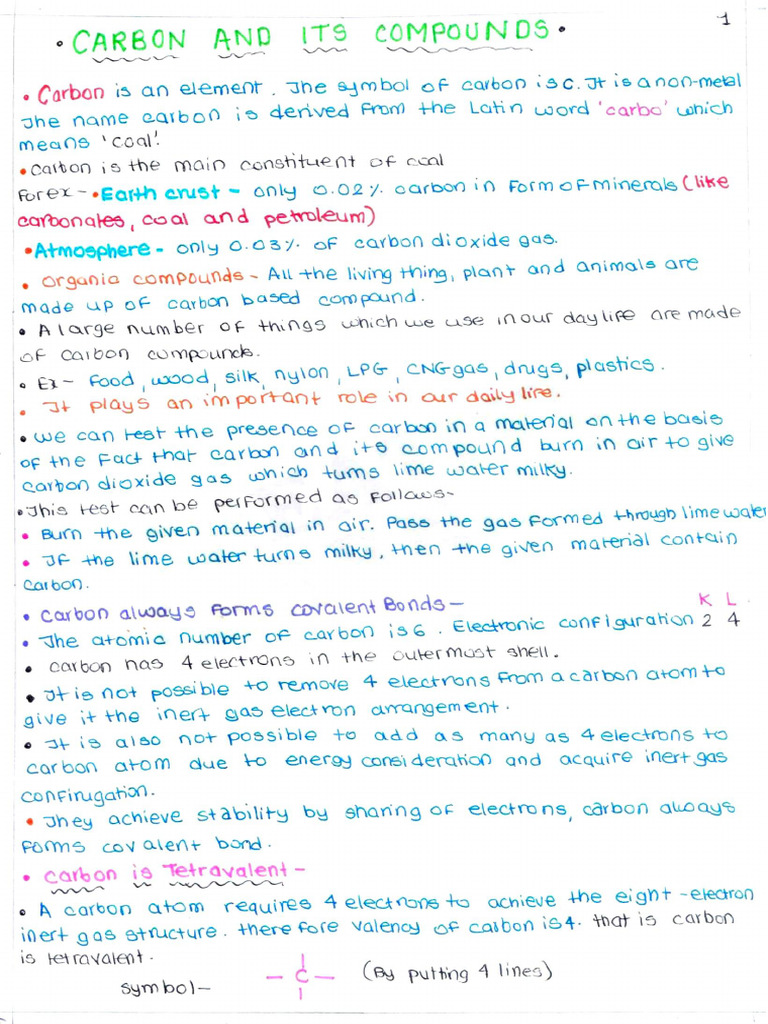 1
• CARBON AND ITS COMPOUNDS •
• Carbon is an element. The symbol of carbon is C. It is a non-metal
The name carbon is derived from the Latin word 'carbo' which
means 'coal'.
• Carbon is the main constituent of coal
For ex - • Earth crust - only 0.02% carbon in form of minerals (like
carbonates, coal and petroleum)
• Atmosphere - only 0.03% of carbon dioxide gas.
• organic compounds - All the living thing, plant and animals are
made up of carbon based compound.
• A large number of things which we use in our day life are made
of carbon compounds.
• Ex - Food, wood, silk, nylon, LPG, CNG gas, drugs, plastics.
• It plays an important role in our daily life.
• we can test the presence of carbon in a material on the basis
of the fact that carbon and its compound burn in air to give
carbon dioxide gas which turns lime water milky.
• This test can be performed as follows-
• Burn the given material in air. Pass the gas formed through lime water
• If the lime water turns milky, then the given material contain
carbon.
• Carbon always forms covalent Bonds - K L
• The atomic number of carbon is 6. Electronic configuration 2 4
• carbon has 4 electrons in the outermost shell.
• It is not possible to remove 4 electrons from a carbon atom to
give it the inert gas electron arrangement.
• It is also not possible to add as many as 4 electrons to
carbon atom due to energy consideration and acquire inert gas
confirugation.
• They achieve stability by sharing of electrons, carbon always
forms covalent bond.
• carbon is Tetravalent -
• A carbon atom requires 4 electrons to achieve the eight-electron
inert gas structure. therefore valency of carbon is 4. that is carbon
is tetravalent.
symbol- C (By putting 4 lines)